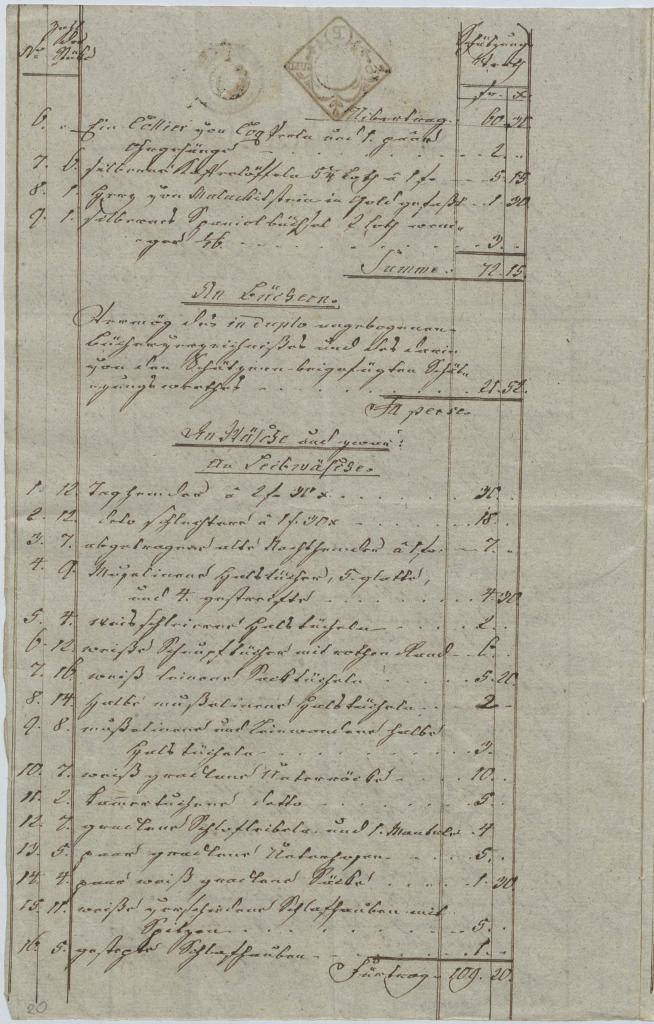 Nr. Zahl der Stücke Schätzungs Werth
fr. x
Uibertrag. 60. 30
6. Ein Collier von und 1. paar
Ohrgehänge . . . . 2. .
7. 6. silberne Kaffeelöffeln 5¼ Loth à 1 f. 5. 15
8. 1. Herz von Malachitstein in Gold gefaßt 1. 30
9. 1. silbernes Spaniolbüchsel 2 Loth
. . . 3. .
Summe. 72. 15.
An Büchern.
Vermög des in duplo angebogenen
Bücherverzeichnißes und des darin
von den Schätzmen beigefügten Schät-
zungswerthes . . . . 21. 52.
In perse.
An Wäsche und zwar:
An Leibwäsche.
1. 12. Taghemder à 2 f. 30 x . . . 30. .
2. 12. deto schlechtere à 1 f. 30 x . . . 18. .
3. 7. abgetragene alte Nachthemder à 1 f. 7. .
4. 9. Musselinene Halstücher, 5. glatte,
und 4. gestreifte . . . . 4. 30.
5. 4. weis schleierne Halstücheln . . . 2. .
6. 12. weiße Schnupftücher mit rothen Rand 6. .
7. 16. weiß leinene Sacktücheln . . . 5. 20.
8. 14. halbe mußelinene Halstücheln . . 2 -
9. 8. mußelinene und leinwandene halbe
Halstücheln . . . . 3. .
10. 7. weiß gradlene Unterröcke . . . 10. .
11. 2. kammertuchene detto . . . . 5. .
12. 7. gradlene Schlafleibeln und 1. Mantele 4
13. 5. paar gradlene Unterhosen . . . 5. .
14. 4. paar weiß gradlene Säcke . . . 1. 30
15. 11. weiße verschiedene Schlafhauben mit
Spitzen . . . . 5. .
16. 5. gesteppte Schlafhauben . . . 1. .
Fürtrag 109. 20.
20